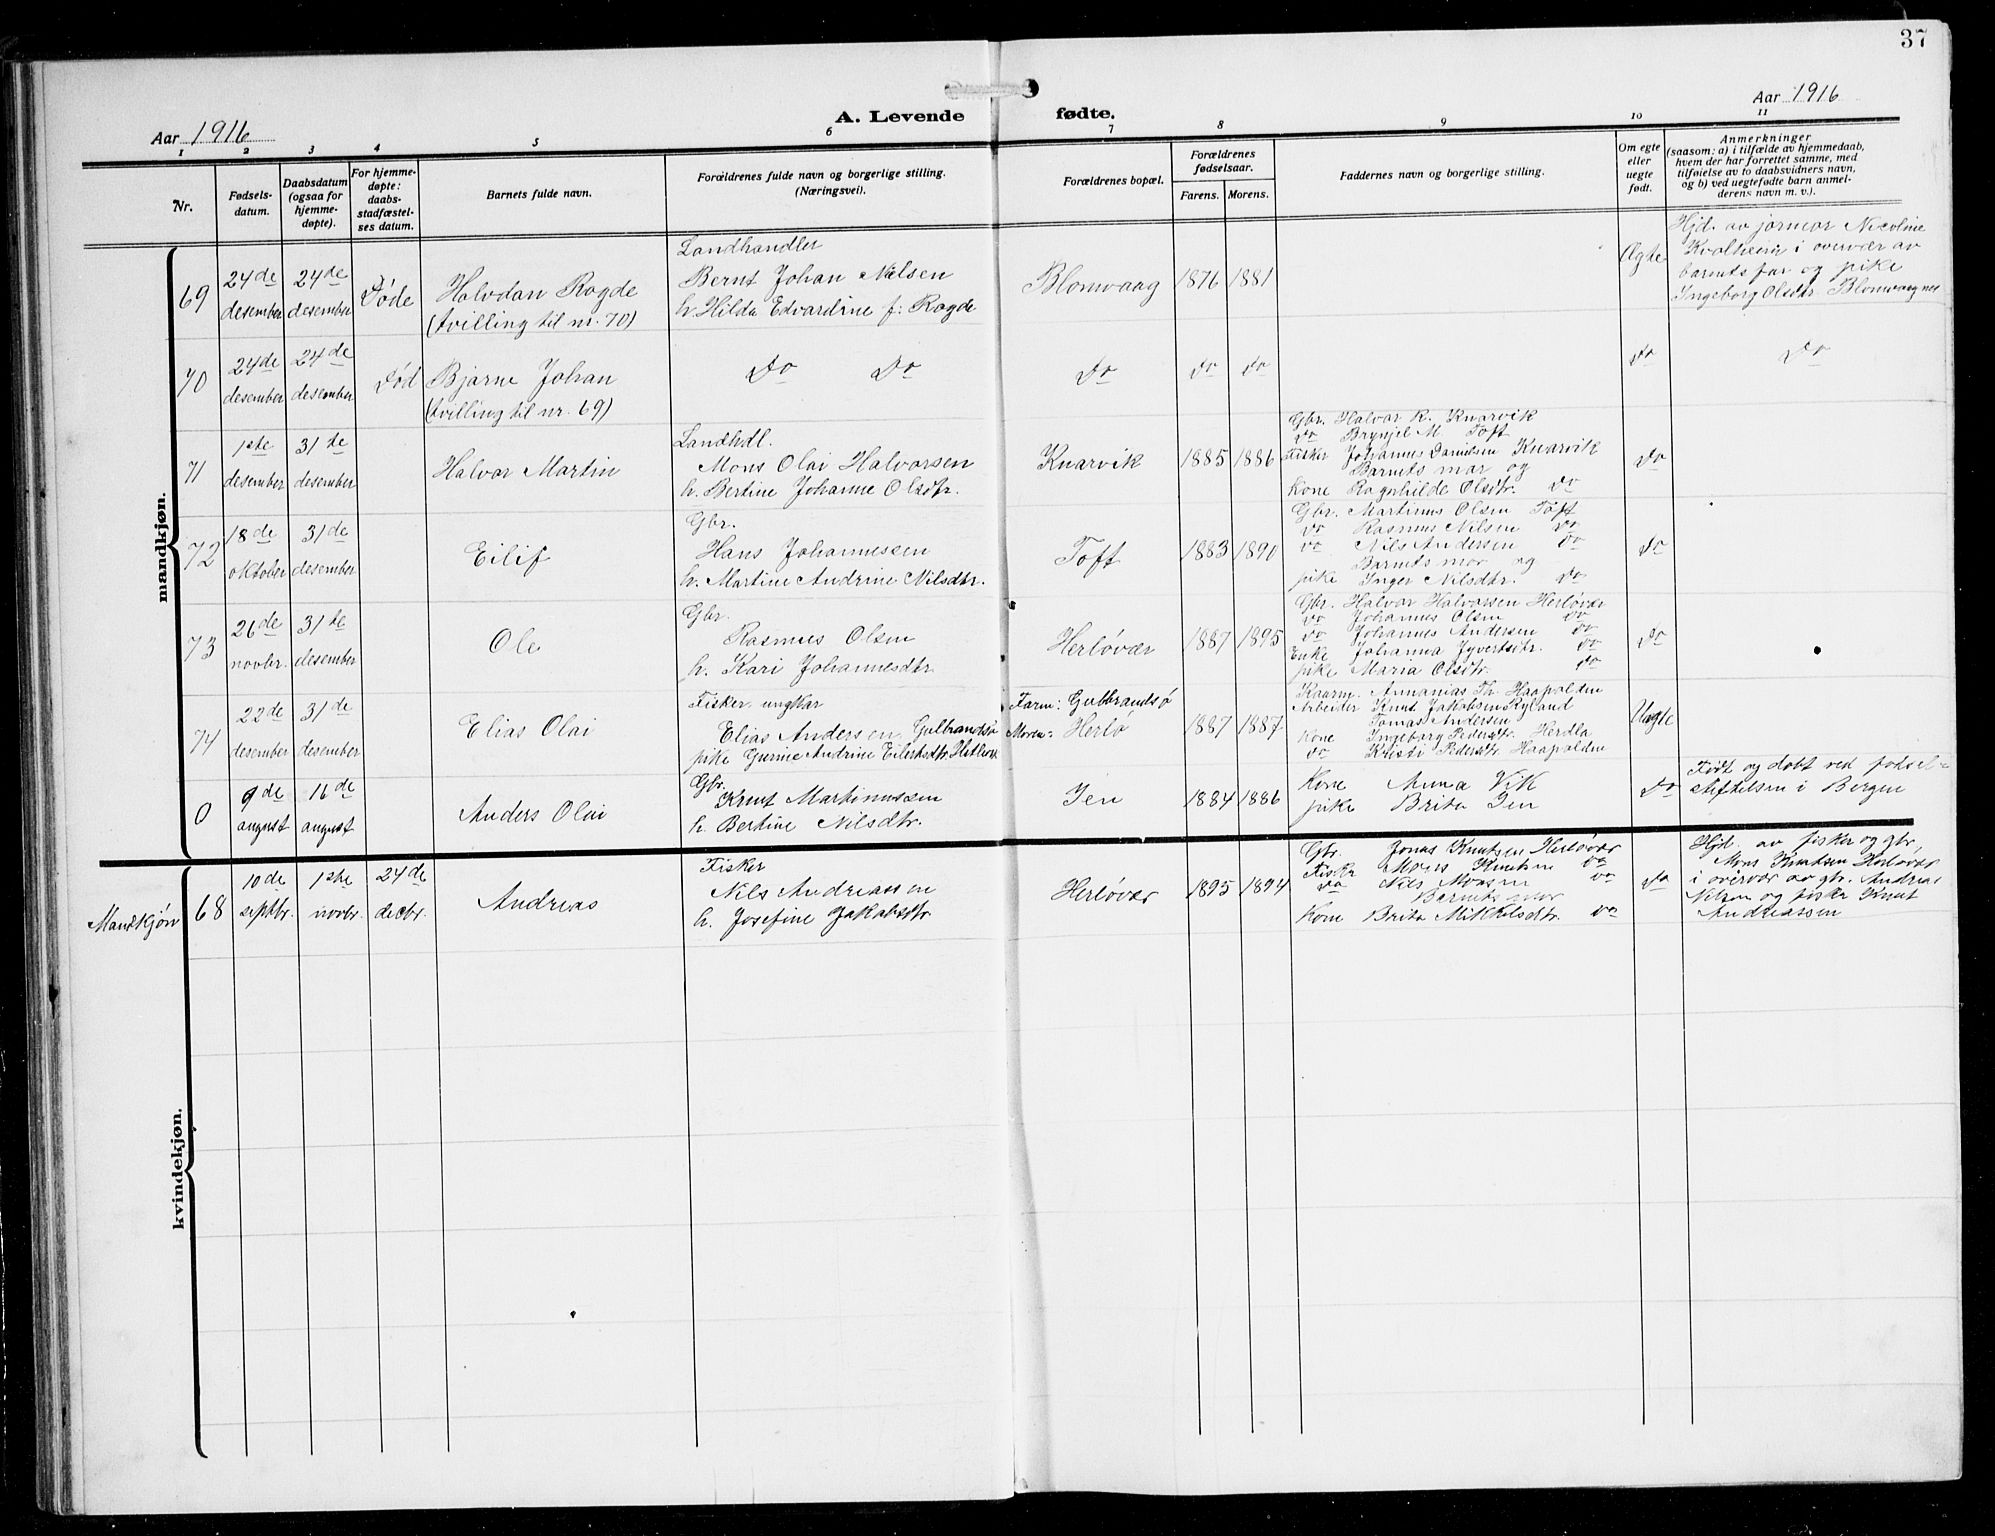 37
Aar 1916
A. Levende fødte.
Aar 1916
1 2 3 4 5 6 7 8 9 10 11
Nr.
Fødsels-
datum.
Daabsdatum
(ogsaa for
hjemme-
døpte).
For hjemme-
døpte:
daabs-
stadfæstel-
ses datum.
Barnets fulde navn.
Forældrenes fulde navn og borgerlige stilling.
(Næringsvei).
Forældrenes bopæl.
Forældrenes
fødselsaar.
Farens. Morens.
Faddernes navn og borgerlige stilling.
Om egte
eller
uegte
født.
Anmerkninger
(saasom: a) i tilfælde av hjemmedaab,
hvem der har forrettet samme, med
tilføielse av to daabsvidners navn,
og b) ved uegtefødte barn anmel-
derens navn m. v.).
mandkjøn.
69
24de
desember
24de
desember
Døde
Halvdan Rogde
(tvilling til nr. 70)
Landhandler
Bernt Johan Nilsen
h. Hilda Edvardine f: Rogde
Blomvaag
1876
1881
Ægte
Hjd. av jormor Nicoline
Kvalheim i overvær av
barnets far og pike
Ingeborg Olsdtr. Blomvaagnes
70
24de
desember
24de
desember
Død
Bjarne Johan
(tvilling til nr. 69)
Do Do
Do
Do
Do
Do
Do
71
1ste
desember
31te
desember
Halvor Martin
Landhdl.
Mons Olai Halvorsen
h. Bertine Johanne Olsdtr.
Knarvik
1885
1886
Gbr. Halvar R. Knarvik
Do Brynjel M. Toft
Fisker Johannes Danielsen Knarvik
Barnets mor og
Kone Ragnhilde Olsdtr. Do
Do
72
18de
oktober
31de
desember
Eilif
Gbr.
Hans Johannessen
h. Martine Andrine Nilsdtr.
Toft
1883
1890
Gbr. Martinus Olsen Toft
Do Rasmus Nilsen Do
Do Nils Andersen Do
Barnets mor og
pike Inger Nilsdtr. Do
Do
73
26de
novbr.
31te
desember
Ole
Gbr.
Rasmus Olsen
h. Kari Johannesdtr
Herløvær
1887
1895
Gbr. Halvar Halvorsen Herløvær
Do Johannes Olsen Do
Do Johannes Andersen Do
Enke Johanna Jyvertsdtr. Do
pike Maria Olsdtr. Do
Do
74
22de
desember
31de
desember
Elias Olai
Fisker ungkar
Elias Andersen Gulbrandsø
pike Gurine Andrine Eilertsdtr.
Farm: Gulbrandsø
Moren: Herlø
1887
1887
Kaarm. Annanias Th. Haapolden
Arbeider Knut Jakobsen Ryland
Tomas Andersen
Kone Ingeborg Pederstr. Herdla
Do Kristi Pederstr. Haapolden
Uægte
0
9de
august
16de
august
Anders Olai
Gbr.
Knut Martinussen
h. Bertine Nilsdtr.
Jen
1884
1886
Kone Anna Vik
pike Brita Jen
Do
Født og døbt ved fødsel-
stiftelsen i Bergen
Mandkjøn
68
10de
septbr.
1ste
novbr.
24de
decbr.
Andreas
Fisker
Nils Andreassen
h. Josefine Jakobsdtr
Herløvær
1895
1894
Gbr. Jonas Knutsen Herløvær
Fisker Mons Knutsen Do
Do Nils Monsen Do
Barnets mor
Kone Brita Mikkelsdtr. Do
Do
Hjd. av fisker og gbr.
Mons Knutsen Herløvær
i overvær av gbr. Andreas
Nilsen og fisker Knut
Andreassen
kvindekjøn.